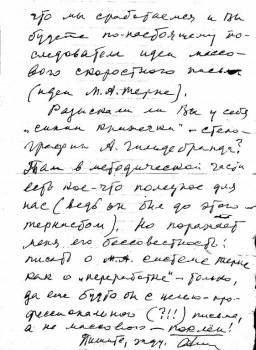 что мы сработаемся и Вы
будете по-настоящему по-
следователем идеи массо-
вого скоростного письма
(идеи М.А.Терне).
Разыскали ли Вы у себя
стено-
графии А. Гильдебранда?
Там в методической части
есть кое-что полезное для
нас (ведь он был до этого
тернистом). Но поражает
меня его бессовестность:
писать о М.А. системе Терне
как о "переработке" – только,
да еще будто бы с целью про-
фессионального (?!!) письма,
а не массового – поклёп!
Пишите, жду.